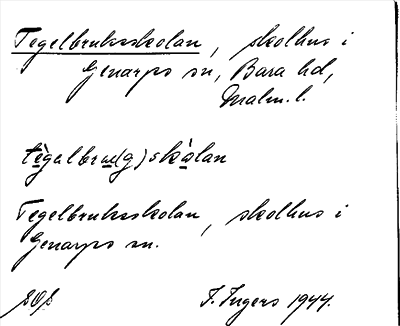 Tegelbruksskolan, skolhus i
Genarps sn, Bara hd,
Malm. l.
tègalbru(g)skòlan
Tegelbruksskolan, skolhus i
Genarps sn.
I. Ingers 1944.